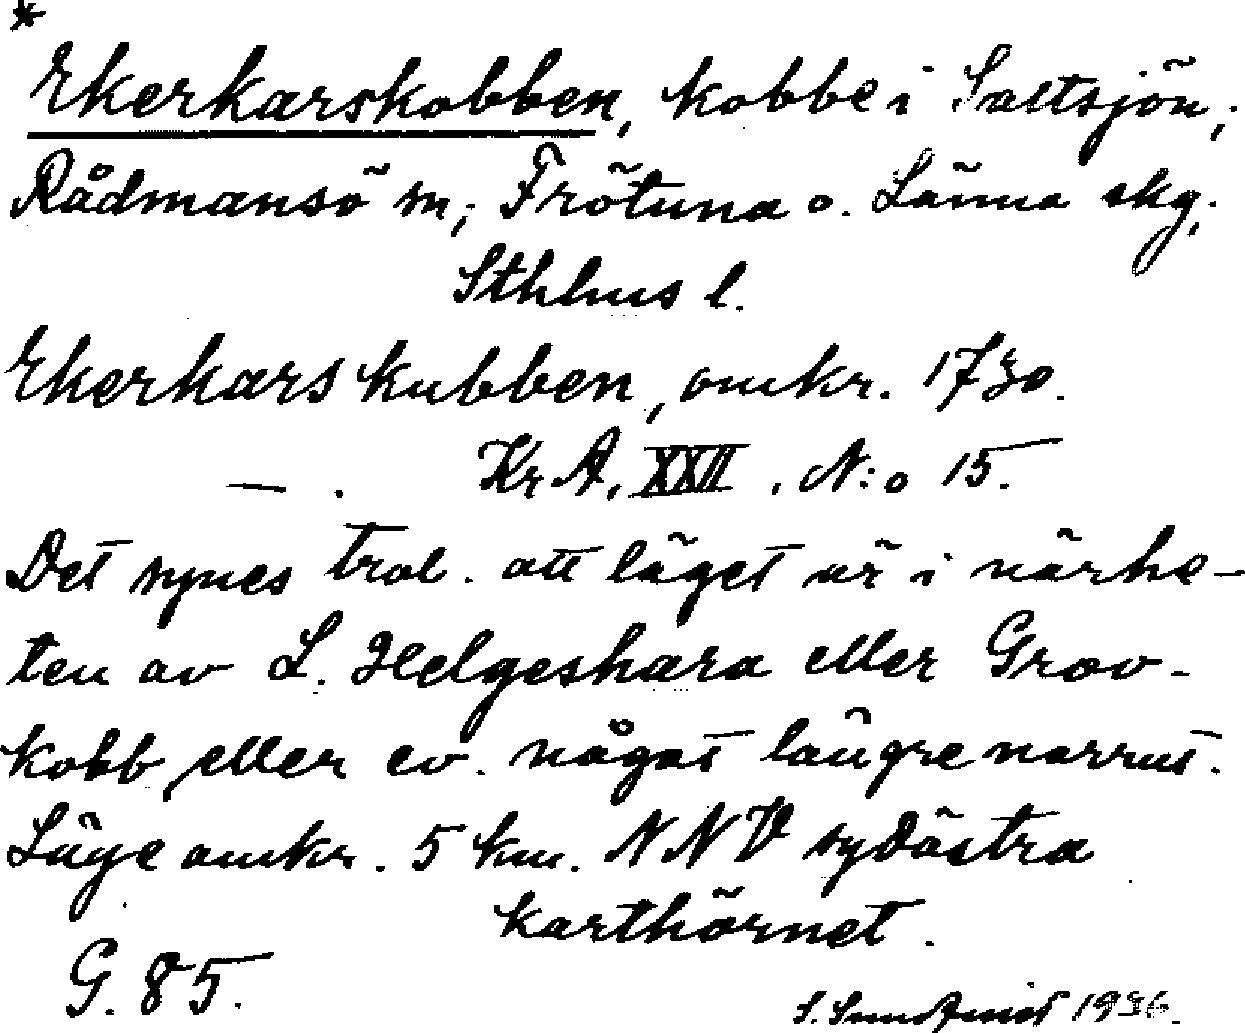 *
Ekerkarskobben, kobbe i Saltsjön;
Rådmansö sn; Frötuna o. Länna skg;
Sthlms l.
Ekerkars kubben, omkr. 1730.
— . Kr A, XXII, N:o 15.
Det synes trol. att läget är i närhe-
ten av L. Helgeshara eller Grov-
kobb, eller ev. något längre norrut.
Läge omkr. 5 km. NNV sydöstra
karthörnet.
G. 85.
S. Sundqvist 1936.